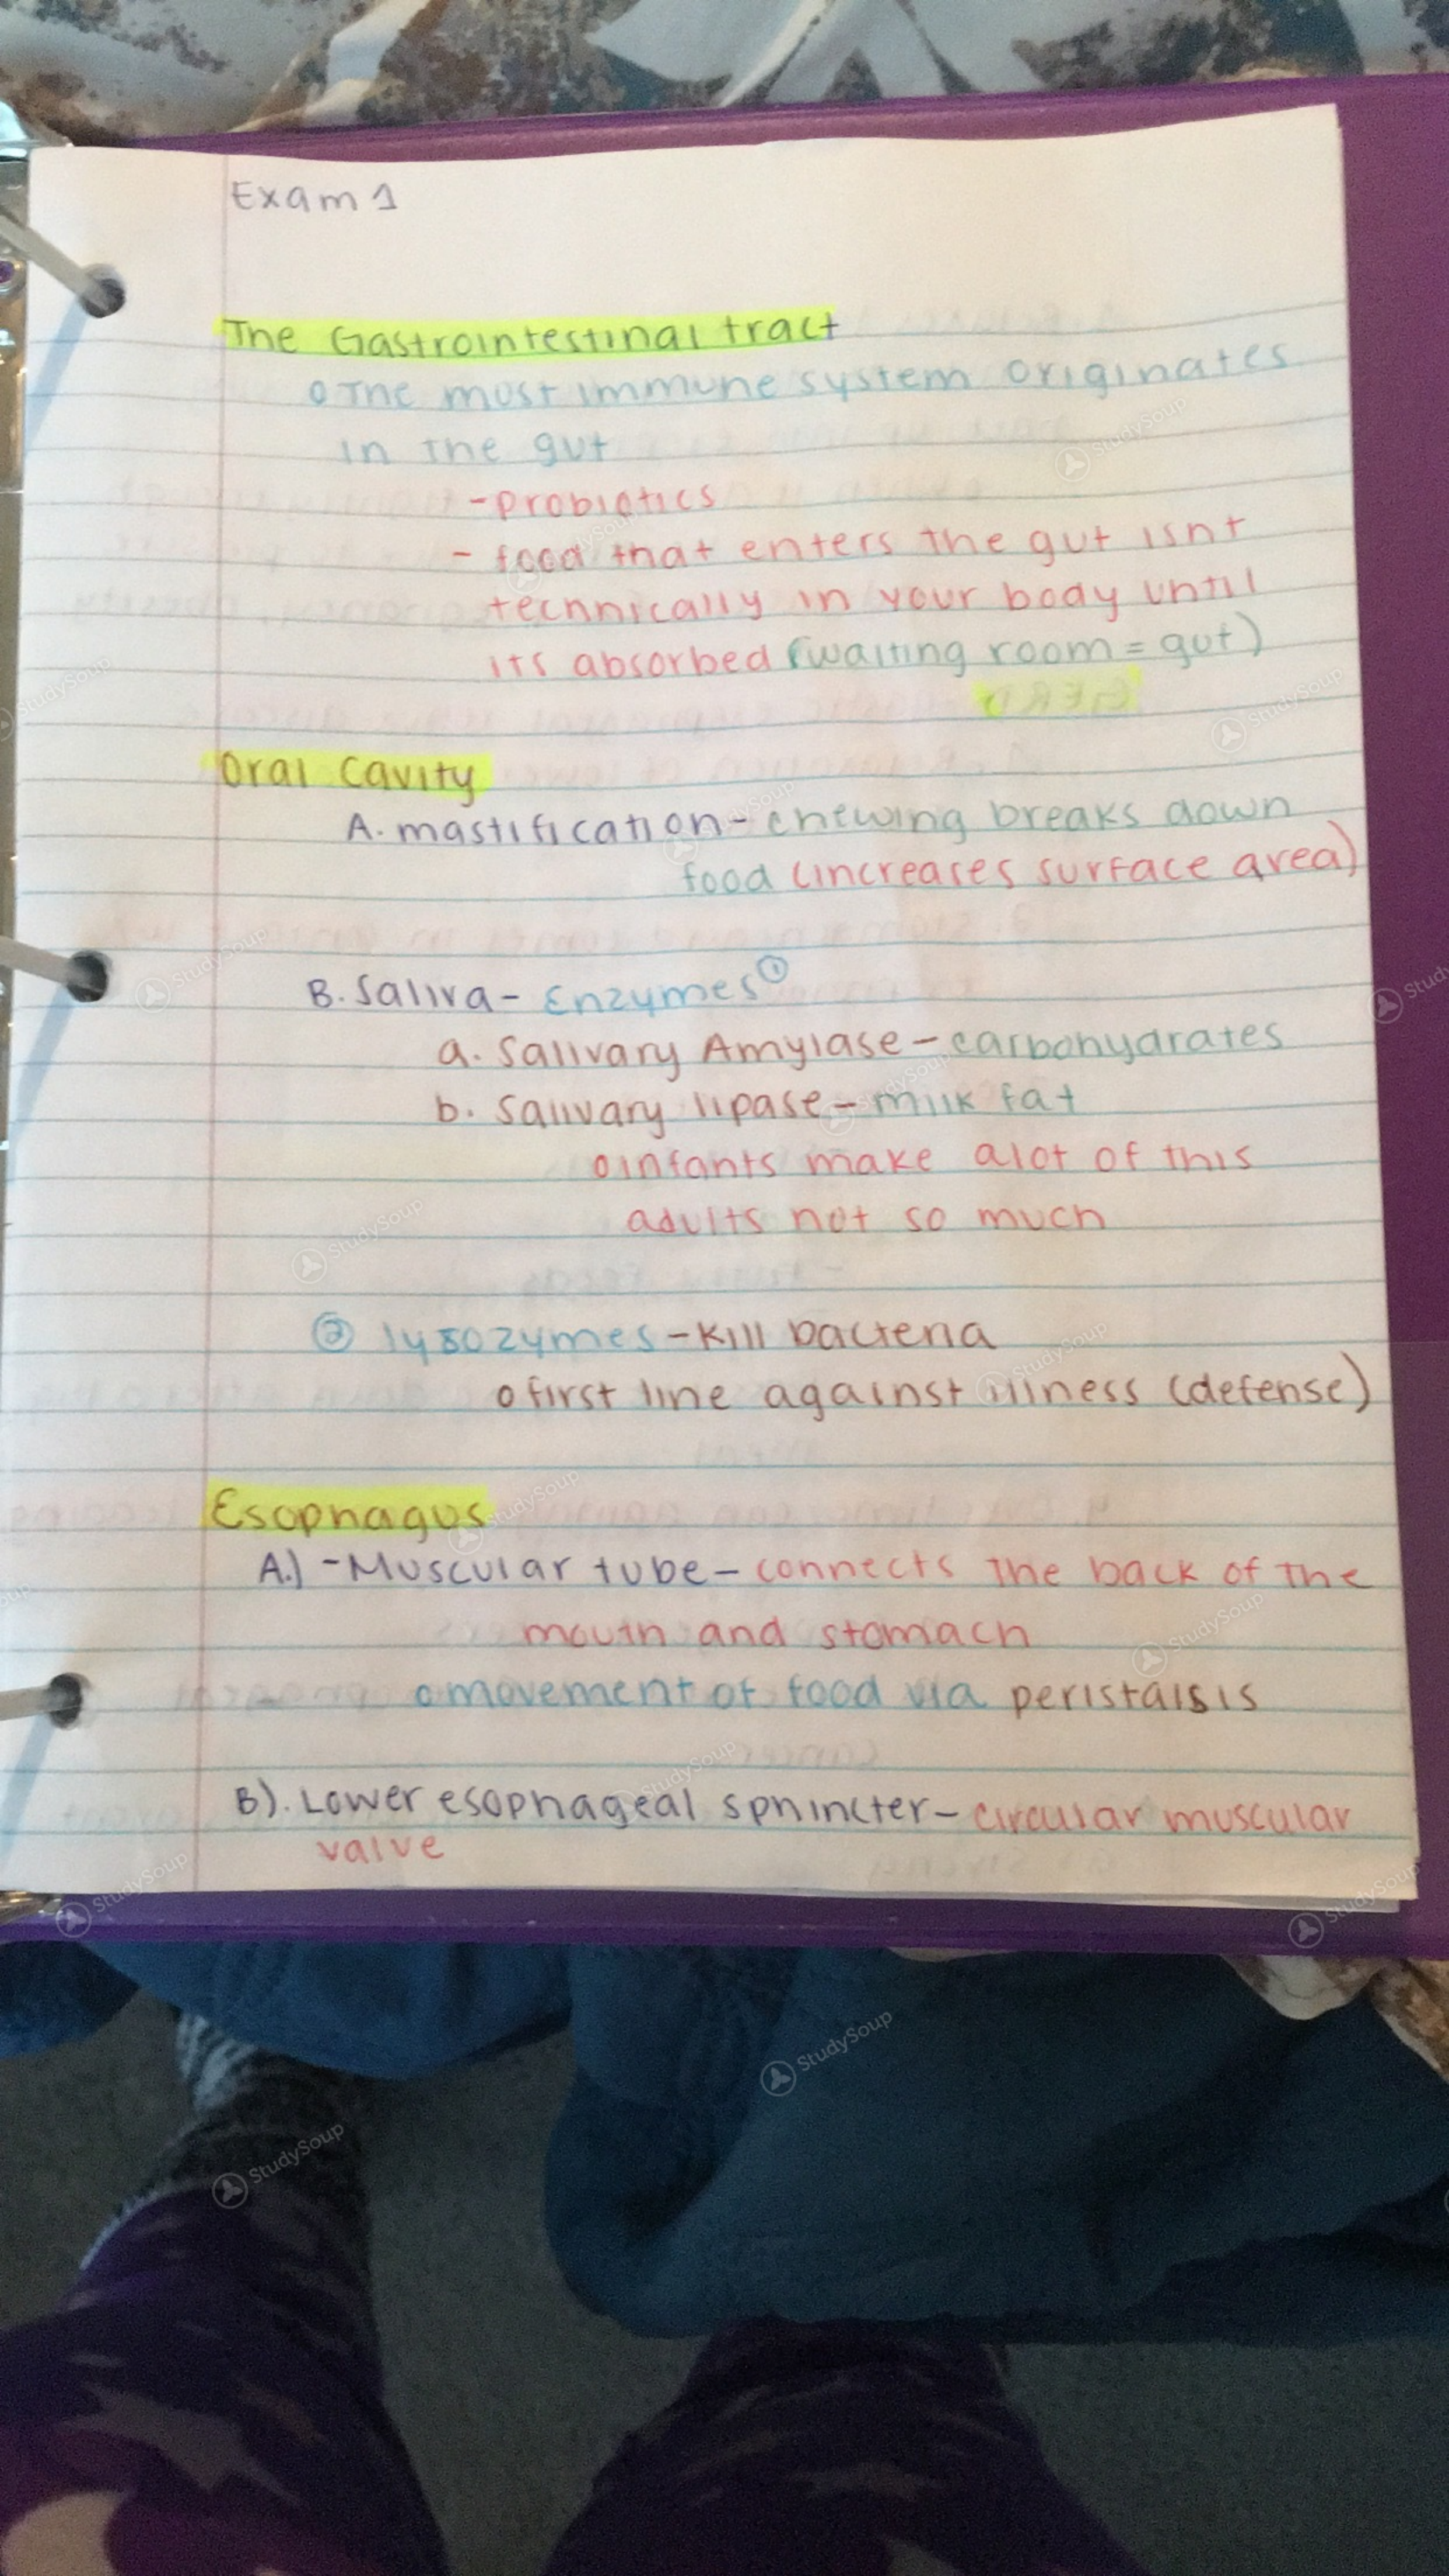 Exam 1
The Gastrointestinal tract
o The most immune system originates
in the gut
- probiotics
- food that enters the gut isnt
technically in your body until
its absorbed (waiting room = gut)
Oral Cavity
A. mastification - chewing breaks down
food (increases surface area)
B. Saliva - Enzymes ①
a. Salivary Amylase - carbohydrates
b. Salivary lipase - milk fat
o infants make alot of this
adults not so much
② lysozymes - kill bacteria
o first line against illness (defense)
Esophagus
A.) - Muscular tube - connects the back of the
mouth and stomach
o movement of food via peristalsis
B). Lower esophageal sphincter - circular muscular
valve
StudySoup